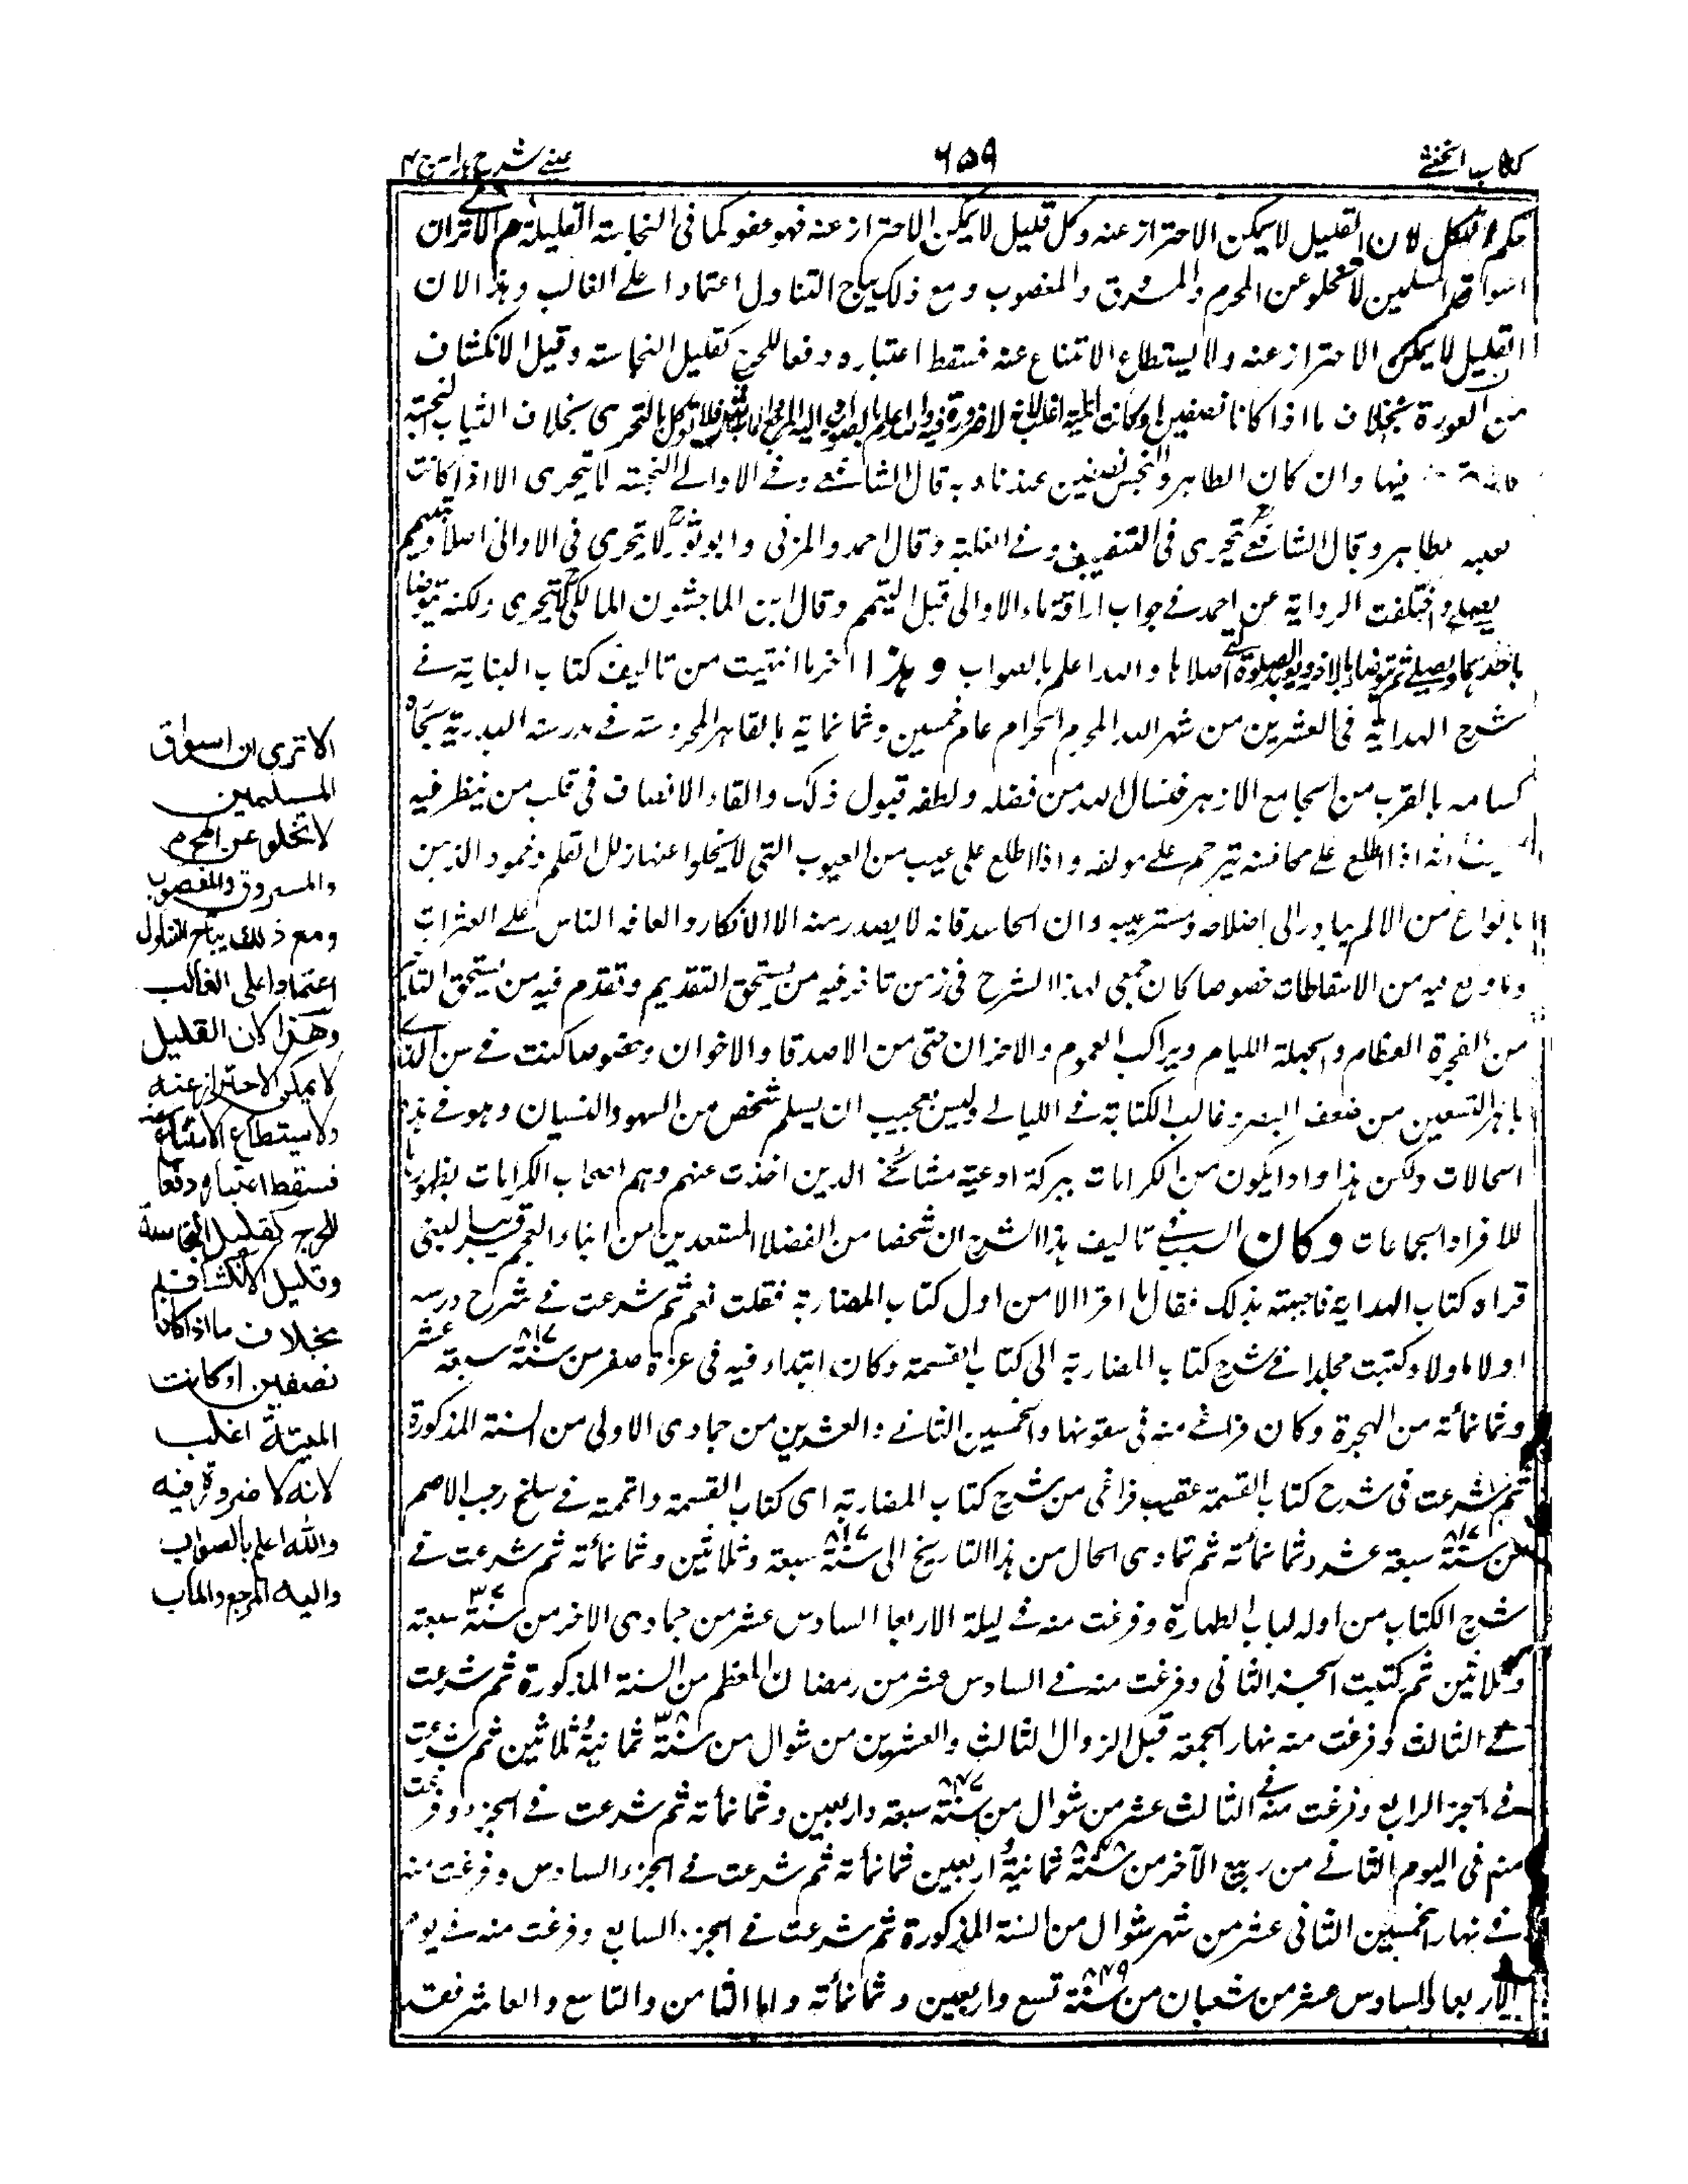 كتاب الخنثى
٦٥٩
عينى شرح هدايه ج ٤
حكم الكل لان القليل لا يمكن الاحتراز عنه وكل قليل لا يمكن الاحتراز عنه فهو عفو كما فى النجاسة القليلة م الا ترى ان
اسواق المسلمين لا تخلو عن المحرم والمسروق والمغصوب ومع ذلك يباح التناول اعتمادا على الغالب وهذا لان
القليل لا يمكن الاحتراز عنه ولا يستطاع الامتناع عنه فسقط اعتباره دفعا للحرج كقليل النجاسة وقليل الانكشاف
من العورة بخلاف ما اذا كانا نصفين او كانت الميتة اغلب لانه لا ضرورة فيه والله اعلم بالصواب واليه المرجع والمآب بالتحرى بخلاف الثياب النجسة
فيها وان كان الطاهر والنجس نصفين عندنا وبه قال الشافعى وفى الاوانى النجسة لا يتحرى الا اذا كانت
بطاهر وقال الشافعى يتحرى فى التنصيف وفى الغلبة وقال احمد والمزنى وابو ثور لا يتحرى فى الاوانى اصلا ويتيمم
يصلى واختلفت الرواية عن احمد فى جواب اراقة ماء الاوانى قبل التيمم وقال ابن الماجشون المالكى يتحرى ولكنه يتوضا
باحدهما ويصلى ثم يتوضا بالاخر ويعيد الصلوة التى صلاها والله اعلم بالصواب وهذا آخر ما انتهيت من تاليف كتاب البناية فى
شرح الهداية فى العشرين من شهر الله المحرم الحرام عام خمسين وثمانماية بالقاهرة المحروسة فى مدرسته البدرية بحارة
كتامه بالقرب من الجامع الازهر فنسال الله من فضله ولطفه قبول ذلك والقاء الانصاف فى قلب من ينظر فيه
انه اذا اطلع على محاسنه يترحم على مولفه واذا اطلع على عيب من العيوب التى لا يخلوا عنها زلل القلم وخمود الذهن
بانواع من الالم يبادر الى اصلاحه وستر عيبه وان الحاسد فانه لا يصدر منه الا الانكار والعافه الناس على العثرات
وما وقع فيه من الاسقاطات خصوصا كان جمعى لهذا الشرح فى زمن تاخر فيه من يستحق التقديم وتقدم فيه من يستحق التاخير
من الفجرة العظام والجهلة الليام ويراكب الغموم والاحزان حتى من الاصدقا والاخوان وخصوصا كنت فى سن
ناهز التسعين من ضعف البصر وغالب الكتابة فى الليالى وليس بعجيب ان يسلم شخص من السهو والنسيان وهو فى هذه
الحالات ولكن هذا وادا يكون من الكرامات ببركة ادعية مشائخى الدين اخذت عنهم وهم اصحاب الكرامات بظهورها
للافراد والجماعات وكان السبب فى تاليف هذا الشرح ان شخصا من الفضلا المستعدين من ابناء العجم قريب
قراه كتاب الهداية فاجبته بذلك فقال ما اقرا الا من اول كتاب المضاربة فقلت نعم ثم شرعت فى شرح درسه
اولا فاولا وكتبت مجلدا فى شرح كتاب المضاربة الى كتاب القسمة وكان ابتداء فيه فى غرة صفر من سنة ٨١٧ سبعة عشر
وثمانمائة من الهجرة وكان فراغى منه فى الخميس الثانى والعشرين من جمادى الاولى من السنة المذكورة
ثم شرعت فى شرح كتاب القسمة عقيب فراغى من شرح كتاب المضاربة اى كتاب القسمة واتممته فى سلخ رجب الاصم
من سنة ٨١٧ سبعة عشر وثمانمائة ثم تمادى الحال من هذا التاريخ الى سنة سبعة وثلاثين وثمانمائة ثم شرعت فى
شرح الكتاب من اوله لباب الطهارة وفرغت منه فى ليلة الاربعا السادس عشر من جمادى الاخر من سنة ٣٧ سبعة
وثلاثين ثم كتبت الجزء الثانى وفرغت منه فى السادس عشر من رمضان المعظم من السنة المذكورة ثم شرعت
فى الثالث وفرغت منه نهار الجمعة قبل الزوال الثالث والعشرين من شوال من سنة ٣٨ ثمانية وثلاثين ثم شرعت
فى الجزء الرابع وفرغت منه فى الثالث عشر من شوال من سنة ٨٤٧ سبعة واربعين وثمانمائة ثم شرعت فى الجزء وفرغت
منه فى اليوم الثانى من ربيع الآخر من سنة ٨٤٨ ثمانية واربعين ثمانمائة ثم شرعت فى الجزء السادس وفرغت منه
فى نهار الخميس الثانى عشر من شهر شوال من السنة المذكورة ثم شرعت فى الجزء السابع وفرغت منه فى يوم
الاربعا السادس عشر من شعبان من سنة ٨٤٩ تسع واربعين وثمانمائة واما الثامن والتاسع والعاشر فقد
الا ترى ان اسواق
المسلمين
لا تخلو عن المحرم
والمسروق والمغصوب
ومع ذلك يباح التناول
اعتمادا على الغالب
وهذا لان القليل
لا يمكن الاحتراز عنه
ولا يستطاع الامتناع عنه
فسقط اعتباره دفعا
للحرج كقليل النجاسة
وقليل الانكشاف
بخلاف ما اذا كانا
نصفين او كانت
الميتة اغلب
لانه لا ضرورة فيه
والله اعلم بالصواب
واليه المرجع والمآب